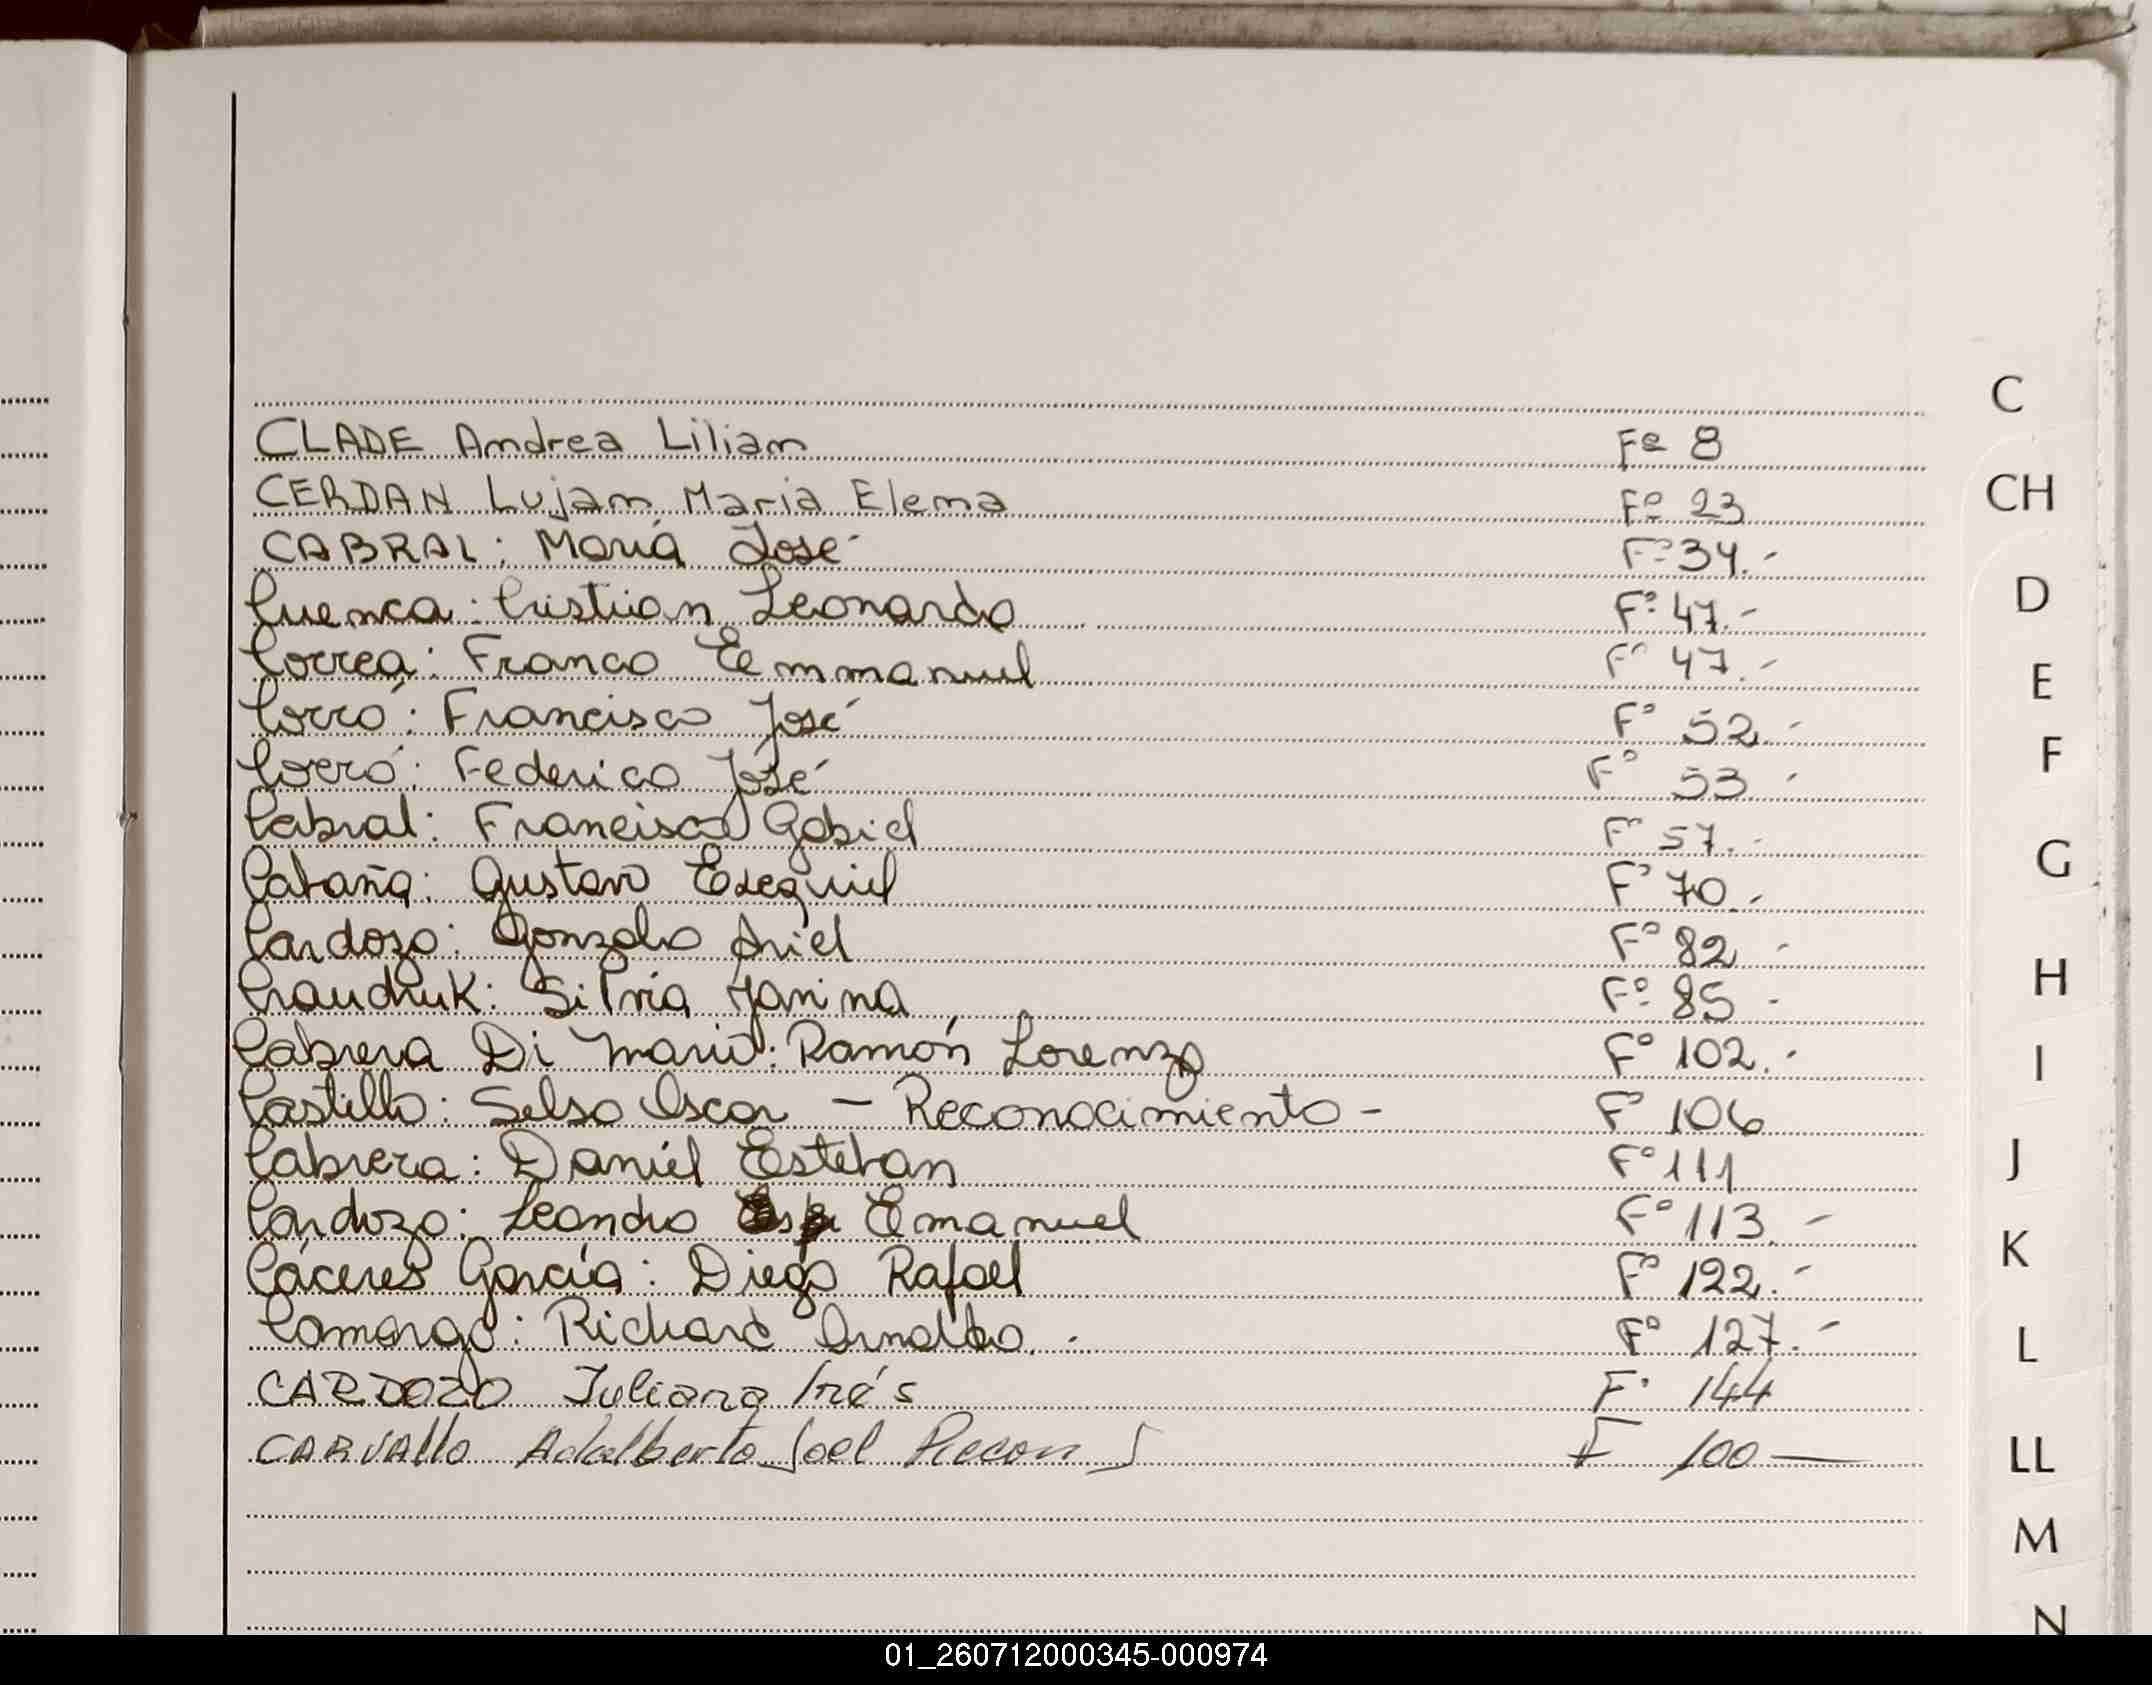 CLADE Andrea Lilian Fº 8
CERDAN Lujan Maria Elena Fº 23
CABRAL: María José Fº 34.-
Cuenca: Cristian Leonardo Fº 47.-
Correa: Franco Eemmanuel Fº 47.-
Corró: Francisco José Fº 52.-
Corró: Federico José Fº 53 -
Cabral: Francisco Gabiel Fº 57.-
Gustavo Ezequiel Fº 70.-
Cardozo: Gonzalo Ariel Fº 82 -
Silvia Yanina Fº 85 -
Cabrera Di Mario: Ramón Lorenzo Fº 102.-
Castillo: Selso Oscar - Reconocimiento - Fº 106
Cabrera: Daniel Esteban Fº 111
Cardozo: Leandro Emanuel Fº 113.-
Cáceres García: Diego Rafael Fº 122.-
Camargo: Richard Arnaldo.- Fº 127.-
CARDOZO Juliana Inés Fº 144
CARVAllo Adalberto Joel F 100 —
C
CH
D
E
F
G
H
I
J
K
L
LL
M
N
01_260712000345-000974